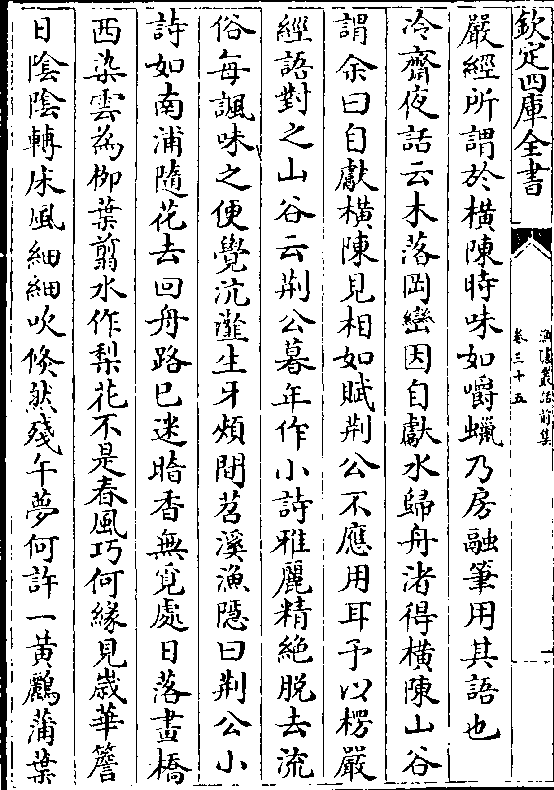 欽定四庫全書
漁隱叢話前集
卷三十五
嚴經所謂於橫陳時味如嚼蠟乃房融筆用其語也
冷齋夜話云木落岡巒因自獻水歸舟渚得橫陳山谷
謂余曰自獻橫陳見相如賦荆公不應用耳予以楞嚴
經語對之山谷云荆公暮年作小詩雅麗精絶脱去流
俗每諷味之便覺沆瀣生牙頰間苕溪漁隱曰荆公小
詩如南浦隨花去回舟路已迷暗香無覓處日落畫橋
西染雲為栁葉翦水作梨花不是春風巧何緣見嵗華簷
日隂隂轉床風細細吹倐然殘午夢何許一黄鸝蒲葉